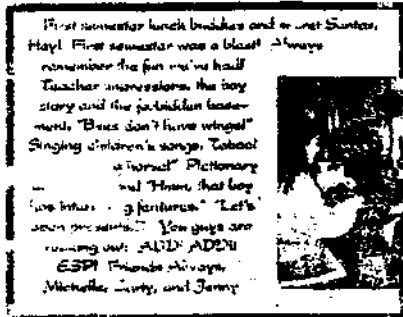 First semester lunch buddies and secret Santas,
Hey! First semester was a blast! Always
remember the fun we've had!
Teacher impressions, the boy
story and the forbidden base-
ment, "Bees don't have wings!"
Singing children's songs,
a horse!" Pictionary
"Hmm, that boy
has features." "Let's
open presents!" You guys are
ADD! ADD!!
ESP! Friends Always,
Michelle, and Jenny